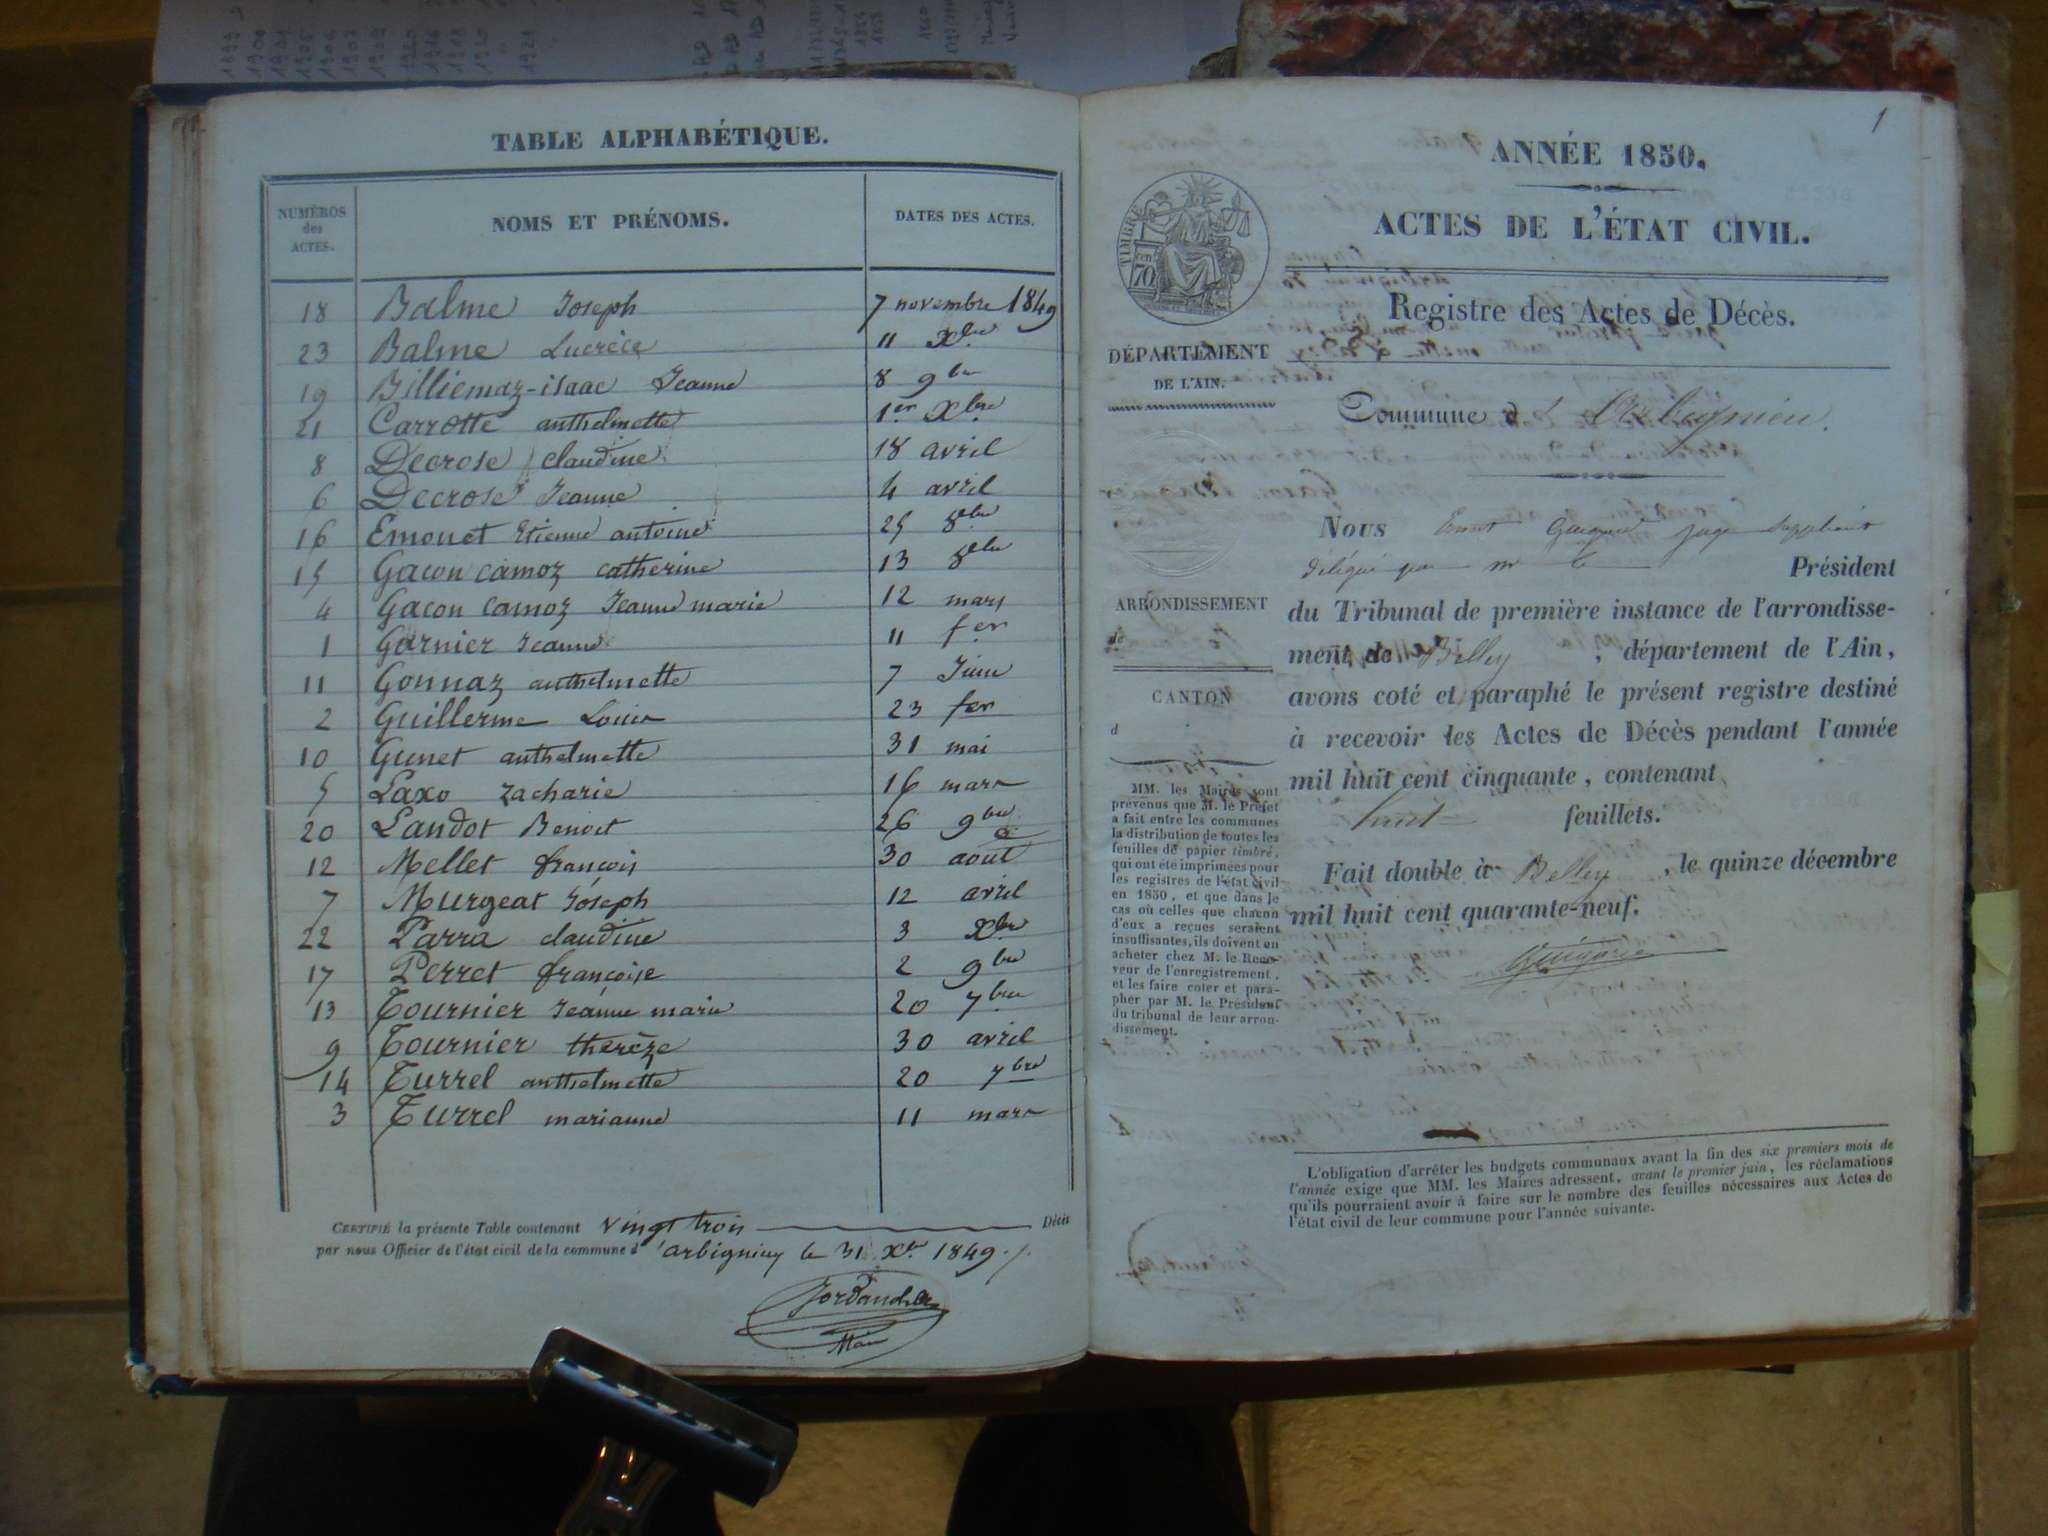 TABLE ALPHABÉTIQUE.
NUMÉROS des ACTES. NOMS ET PRÉNOMS. DATES DES ACTES.
18 Balme Joseph 7 novembre 1849
23 Balme Lucrèce 11 Xbre
19 Billiemaz-isaac Jeanne 8 9bre
21 Carrotte anthelmette 1er Xbre
8 Decrose claudine 18 avril
6 Decrose Jeanne 4 avril
16 Emonet Etienne antoine 25 8bre
15 Gacon camoz catherine 13 8bre
4 Gacon camoz Jeanne marie 12 mars
1 Garnier Jeanne 11 fer
11 Gonnaz anthelmette 7 Juin
2 Guillerme Louis 23 fer
10 Gunet anthelmette 31 mai
5 Laxo zacharie 16 mars
20 Landot Benoit 26 9bre
12 Mellet françois 30 août
7 Murgeat Joseph 12 avril
22 Parra claudine 3 Xbre
17 Perret françoise 2 9bre
13 Tournier Jeanne marie 20 7bre
9 Tournier therèze 30 avril
14 Turrel anthelmette 20 7bre
3 Turrel marianne 11 mars
CERTIFIÉ la présente Table contenant vingt trois Décès
par nous Officier de l'état civil de la commune d'arbignieu le 31 Xbre 1849
Maire
1
ANNÉE 1850.
ACTES DE L'ÉTAT CIVIL.
TIMBRE
70
CEN
Registre des Actes de Décès.
DÉPARTEMENT
DE L'AIN.
Commune d'Arbignieu.
Nous juge suppléant
délégué par mr le Président
ARRONDISSEMENT
de
du Tribunal de première instance de l'arrondisse-
ment de Belley, département de l'Ain,
CANTON
d
avons coté et paraphé le présent registre destiné
à recevoir les Actes de Décès pendant l'année
mil huit cent cinquante, contenant
huit feuillets.
Fait double à Belley, le quinze décembre
mil huit cent quarante-neuf.
MM. les Maires sont
prévenus que M. le Préfet
a fait entre les communes
la distribution de toutes les
feuilles de papier timbré,
qui ont été imprimées pour
les registres de l'état civil
en 1850, et que dans le
cas où celles que chacun
d'eux a reçues seraient
insuffisantes, ils doivent en
acheter chez M. le Rece-
veur de l'enregistrement,
et les faire coter et para-
pher par M. le Président
du tribunal de leur arron-
dissement.
L'obligation d'arrêter les budgets communaux avant la fin des six premiers mois de
l'année exige que MM. les Maires adressent, avant le premier juin, les réclamations
qu'ils pourraient avoir à faire sur le nombre des feuilles nécessaires aux Actes de
l'état civil de leur commune pour l'année suivante.